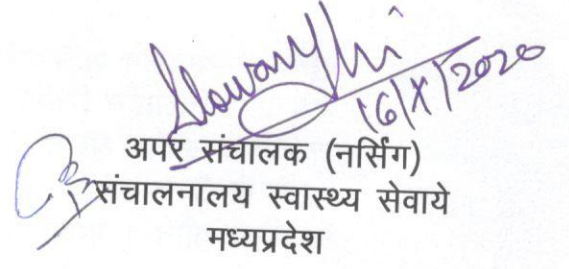 16/X/2020
अपर संचालक (नर्सिंग)
संचालनालय स्वास्थ्य सेवाये
मध्यप्रदेश